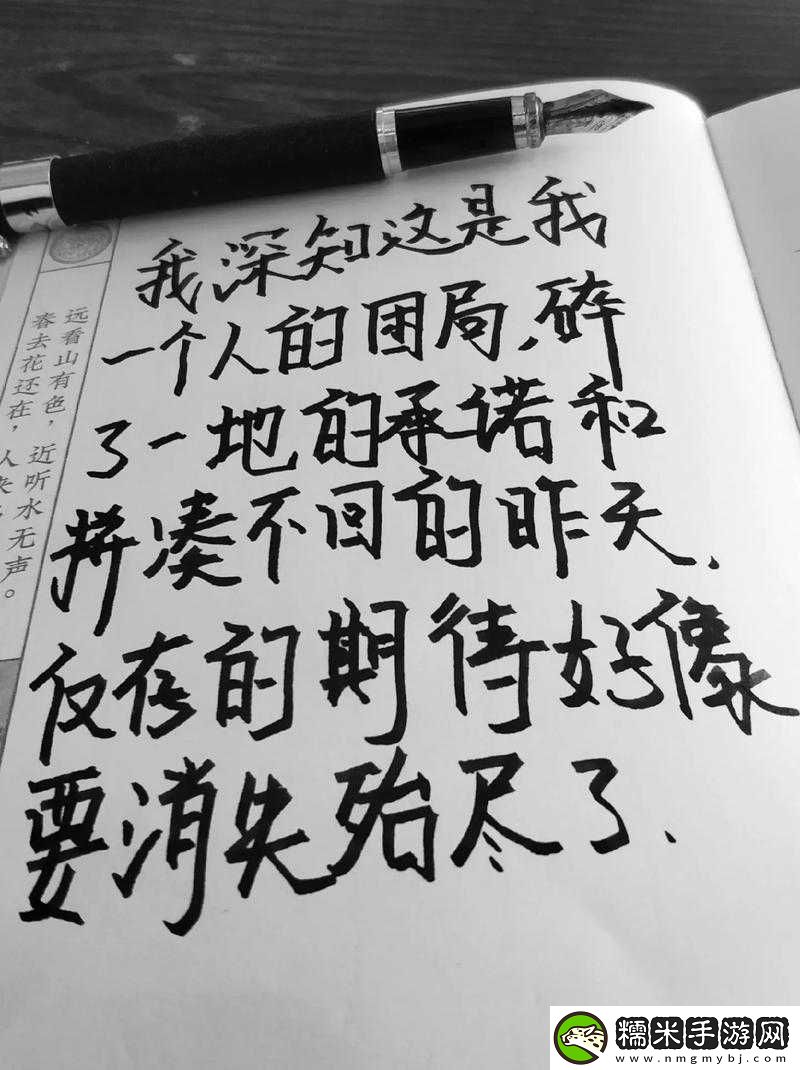 我深知这是我
一个人的困局,碎
了一地的承诺和
拼凑不回的昨天.
仅存的期待好像
要消失殆尽了.
远看山有色，近听水无声。
春去花还在，人来
糯米手游网
www.nmgmybj.com